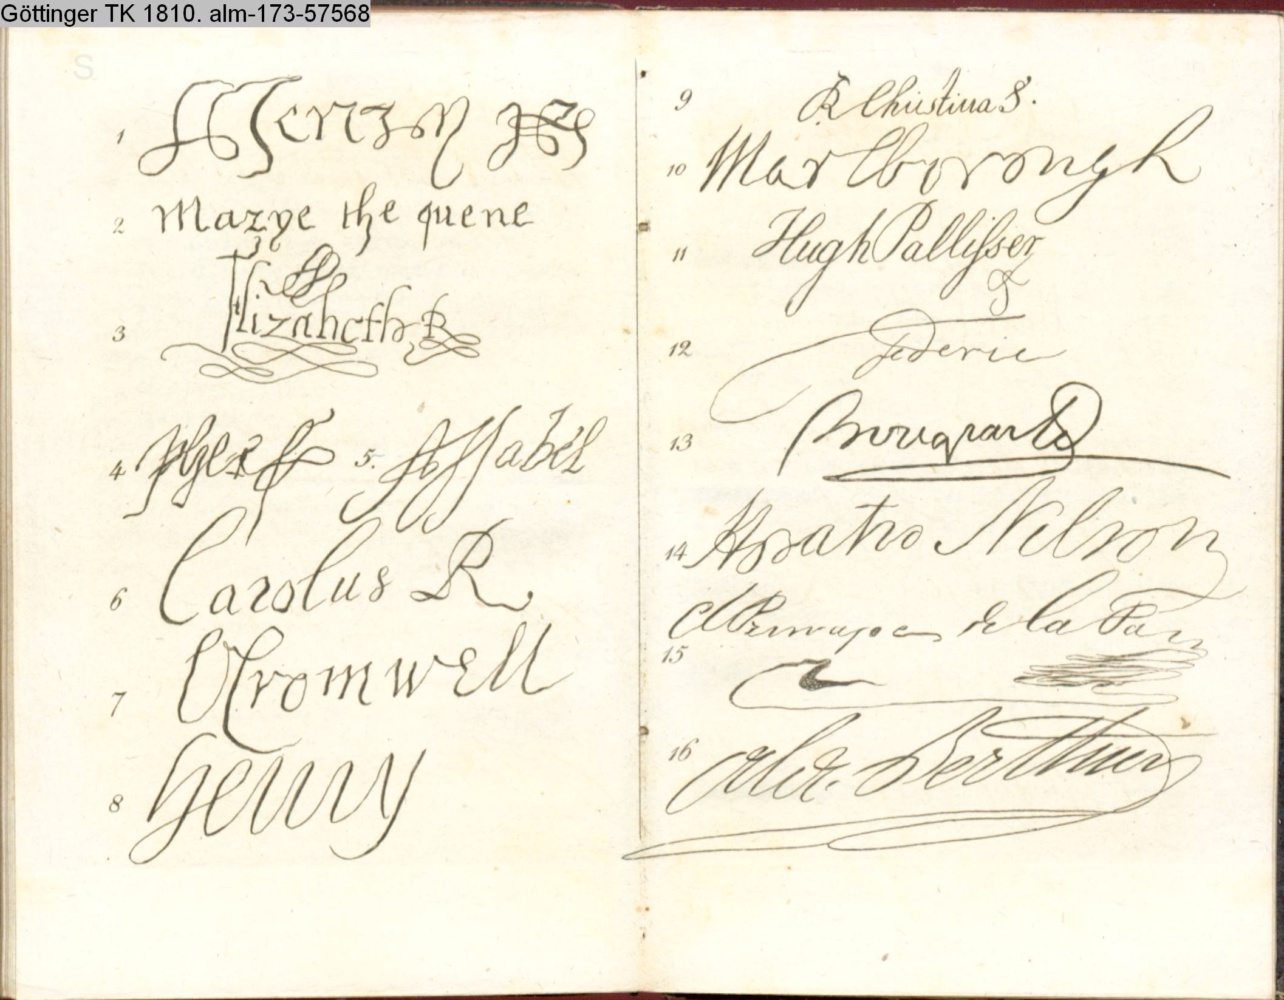 Göttinger TK 1810. alm-173-57568
S
1 Henry
2 Marye the quene
3 Elizabeth R
4
5.
6 Carolus R
7 O Cromwell
8 Henry
9 R Christina S.
10 Marlborough
11 Hugh Pallisser
12 Federic
13 Bonaparte
14 Horatio Nelson
15 de la Paz
16 Alex. Berthier